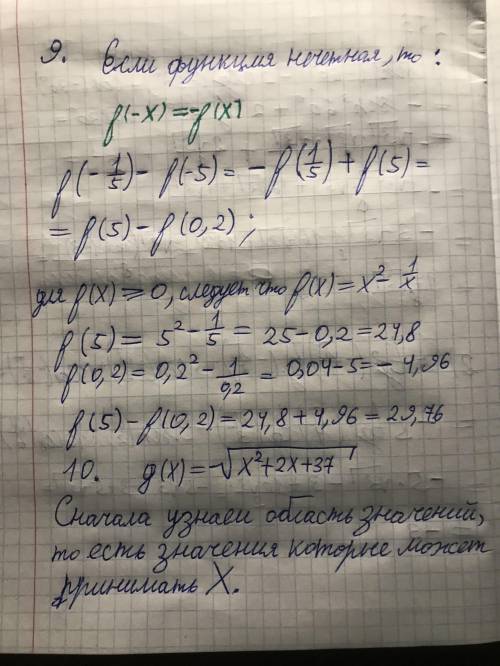 9. Если функция нечетная, то:
f(-x)=-f(x)
f(-1/5)-f(-5)=-f(1/5)+f(5)=
=f(5)-f(0,2);
для f(x)⩾0, следует что f(x)=x²-1/x
f(5)=5²-1/5=25-0,2=24,8
f(0,2)=0,2²-1/0,2=0,04-5=-4,96
f(5)-f(0,2)=24,8+4,96=29,76
10. g(x)=-√(x²+2x+37)
Сначала узнаем область значений,
то есть значения которые может
принимать X.